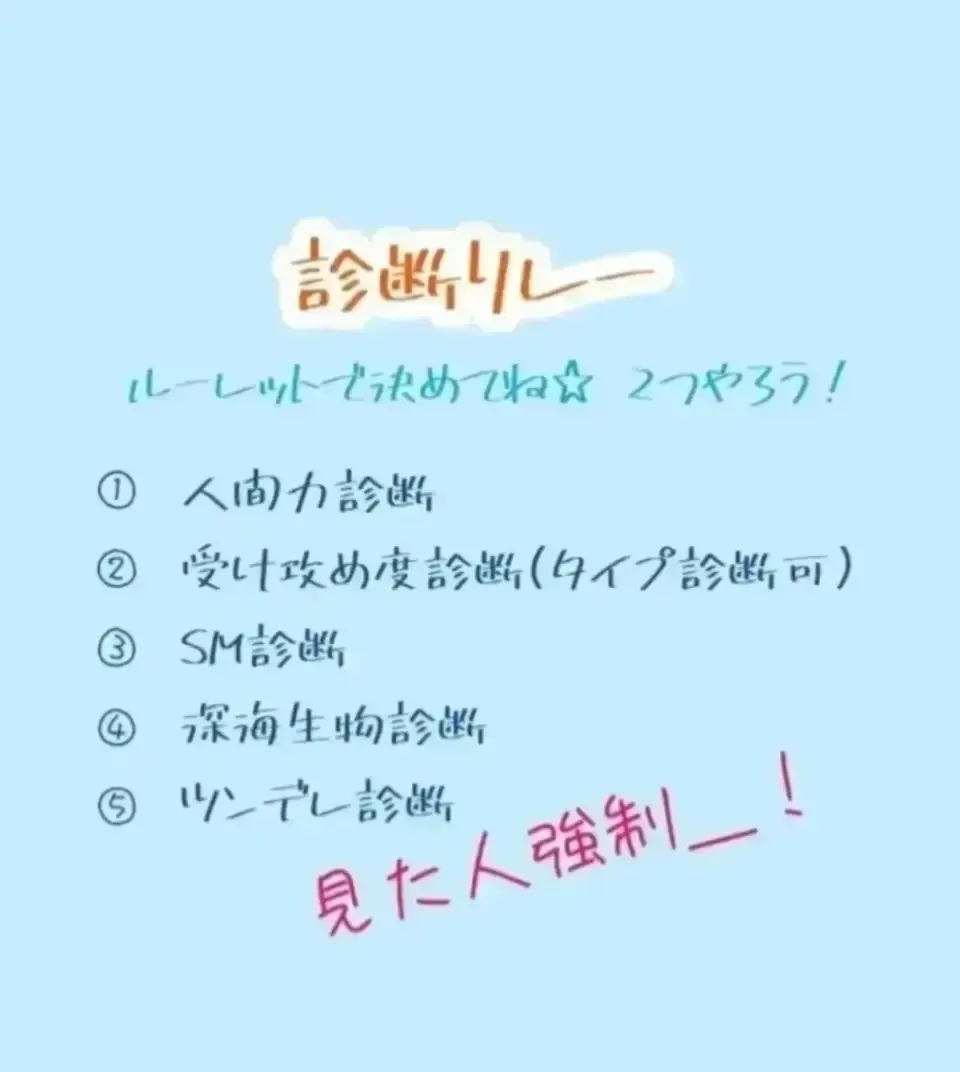 診断リレー
ルーレットで決めてね☆ 2つやろう！
① 人間力診断
② 受け攻め度診断(タイプ診断可)
③ SM診断
④ 深海生物診断
⑤ ツンデレ診断
見た人強制＿！